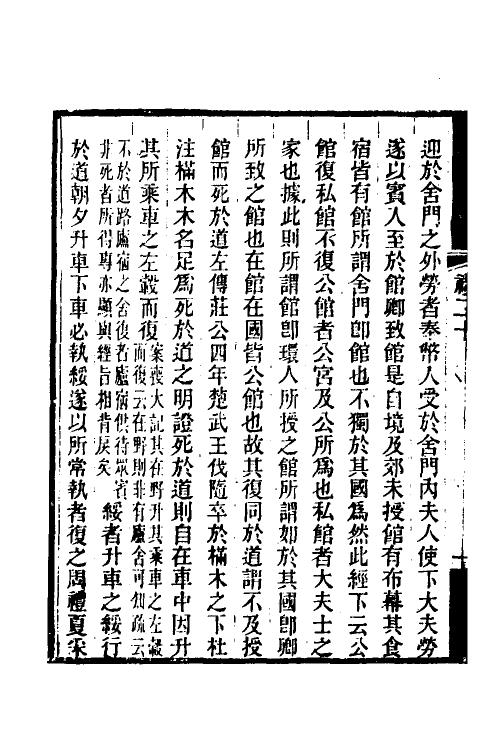 迎於舍門之外勞者奉幣人受於舍門內夫人使下大夫勞
遂以賓入至於館卿致館是自境及郊未授館有布幕其食
宿皆有館所謂舍門卽館也不獨於其國爲然此經下云公
館復私館不復公館者公宮及公所爲也私館者大夫士之
家也據此則所謂館卽環人所授之館所謂如於其國卽卿
所致之館也在館在國皆公館也故其復同於道謂不及授
館而死於道左傳莊公四年楚武王伐隨卒於樠木之下杜
注樠木木名足爲死於道之明證死於道則自在車中因升
其所乘車之左轂而復案喪大記其在野升其乘車之左轂
而復云在野則非有廬舍可知疏云
不於道路廬宿之舍復者廬宿供待眾賓
非死者所得專亦顯與經旨相背戾矣
綏者升車之綏行
於道朝夕升車下車必執綏遂以所常執者復之周禮夏采
禮二十